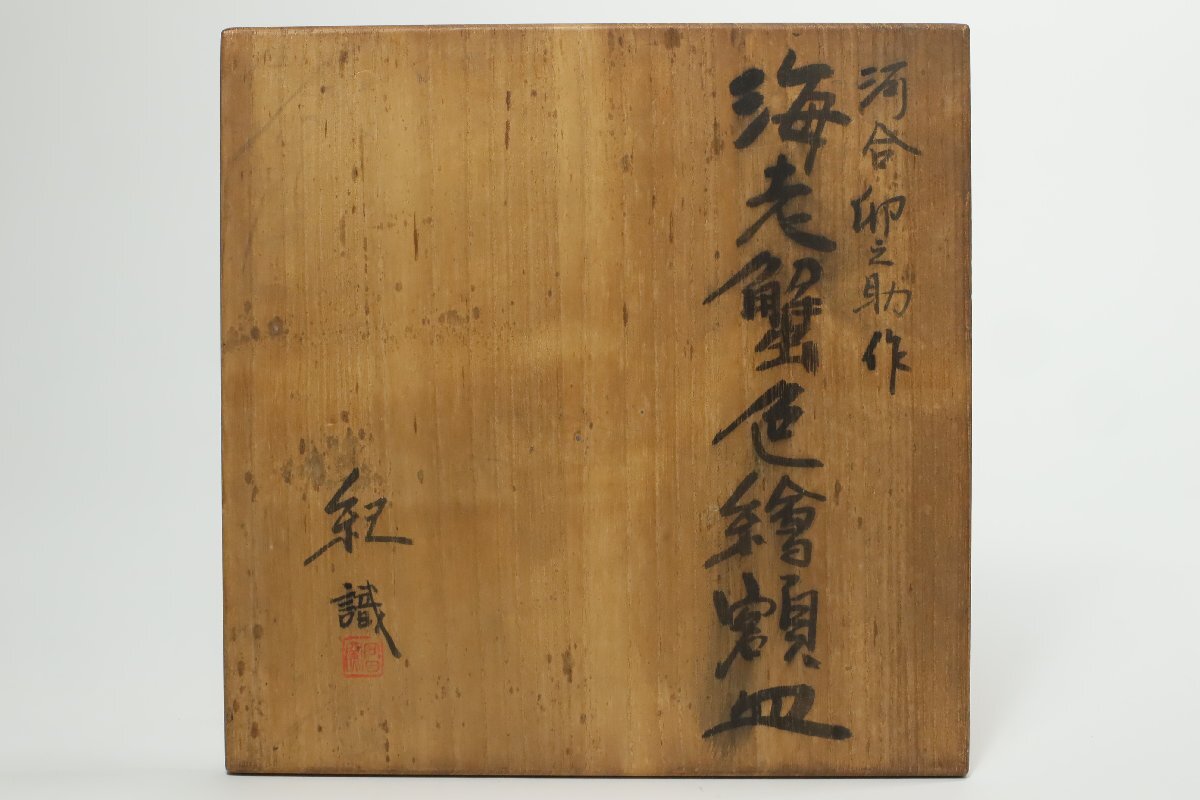 河合卯之助作
海老蟹色繪額皿
紀識